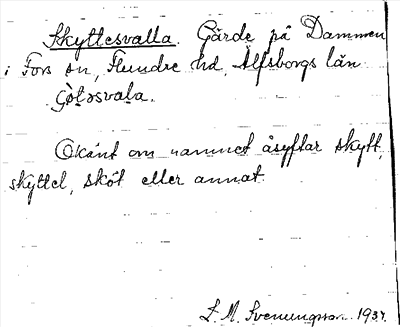 Skyttesvalla. Gärde på Dammen
i Fors sn, Flundre hd, Älfsborgs län.
Okänt om namnet åsyftar skytt,
skyttel, sköt eller annat.
S. M. Svenungsson 1937.